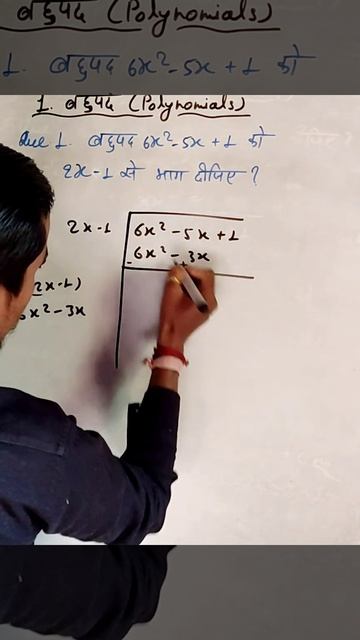 बहुपद (Polynomials)
1. बहुपद 6x² - 5x + 1 को
1. बहुपद (Polynomials)
Que 1. बहुपद 6x² - 5x + 1 को
2x - 1 से भाग दीजिए ?
2x - 1 6x² - 5x + 1
6x² - 3x
- +
2x - 1)
x² - 3x